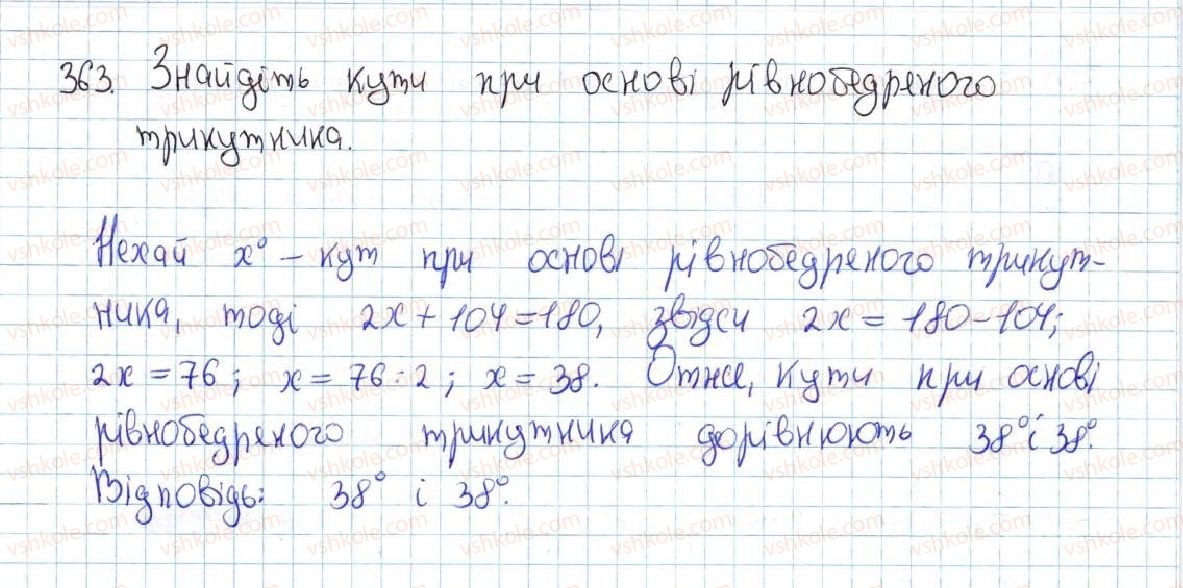 363. Знайдіть кути при основі рівнобедреного
трикутника.
Нехай x° – кут при основі рівнобедреного трикут-
ника, тоді 2x + 104 = 180, звідси 2x = 180 – 104;
2x = 76; x = 76 : 2; x = 38. Отже, кути при основі
рівнобедреного трикутника дорівнюють 38° і 38°.
Відповідь: 38° і 38°.